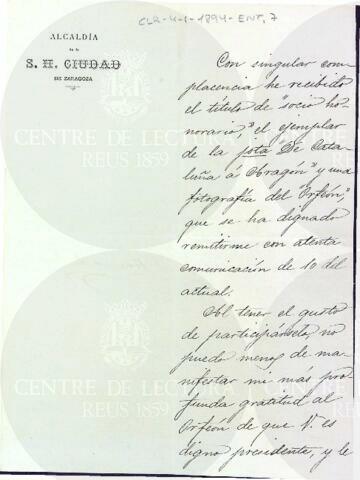 CLR-4-1-1894-ENT, 7
ALCALDÍA
de la
S. H. CIUDAD
DE ZARAGOZA
Con singular com
placencia he recibido
el titulo de "socio ho-
norario," el ejemplar
de la jota "De Cata-
luña á Aragón" y una
fotografia del "Orfeón,"
que se ha dignado
remitirme con atenta
comunicación de 10 del
actual.
Al tener el gusto
de participárselo, no
puedo menos de ma-
nifestar mi más pro
funda gratitud al
Orfeón de que V. es
digno presidente, y le
CENTRE DE LECTURA
REUS 1859
CENTRE DE LECTURA
REUS 1859